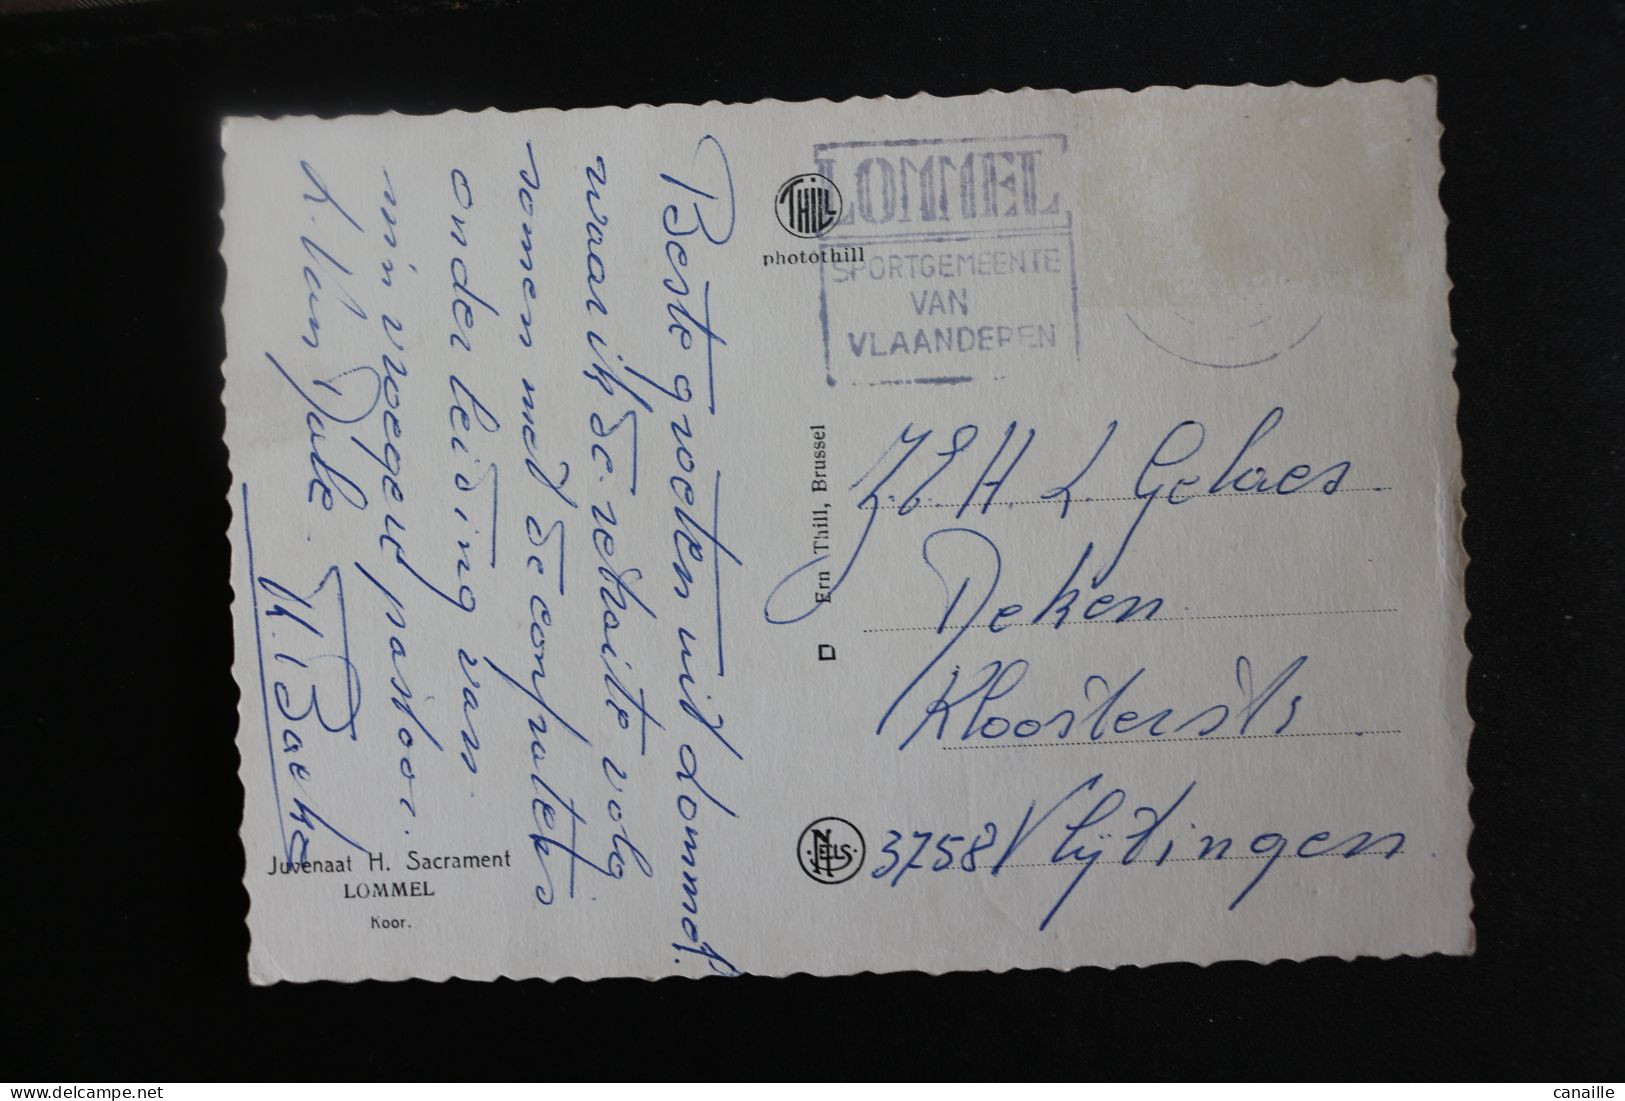 Beste groeten uit Lommel.
waar ik de retraite volg
samen met de confraters
onder leiding van
mijn vroegere pastoor.
K. Van Dale.
THILL
photothill
LOMMEL
SPORTGEMEENTE
VAN
VLAANDEREN
Ern Thill, Brussel
Z.E.H. L. Gelaes
Deken
Kloosterstr
3758 Vlijtingen
NELS
Juvenaat H. Sacrament
LOMMEL
Koor.
canaille